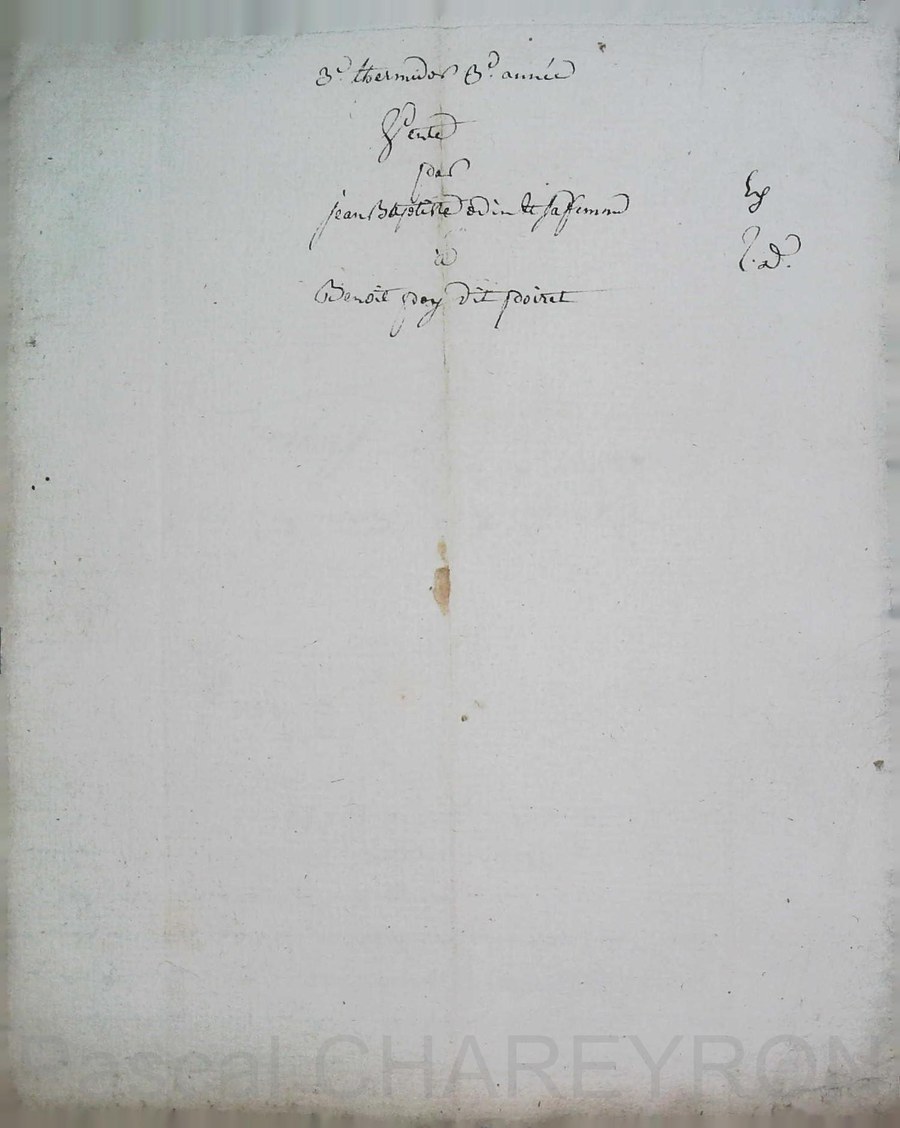 3e thermidor 3e année
Vente
par
jean Baptiste odin et sa femme
a
Benoit pay dit poiret
Ex
Pascal CHAREYRON